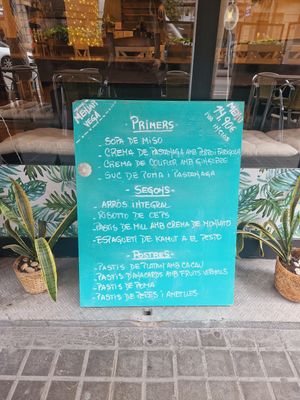 MENU
VEGÀ
MENÚ
14,90€
PRIMERS
- SOPA DE MISO
- CREMA DE PASTANAGA AMB
- CREMA DE COLIFLOR AMB GINGEBRE
- SUC DE POMA I PASTANAGA
SEGONS
- ARRÒS INTEGRAL
- RISOTTO DE CEPS
- PASTIS DE MILL AMB CREMA DE MONIATO
- ESPAGUETI DE KAMUT A EL PESTO
POSTRES
- PASTIS DE PLATAN AMB CACAU
- PASTIS D'ANACARDS AMB FRUITS VERMELLS
- PASTIS DE POMA
- PASTIS DE PERES I AMETLLES